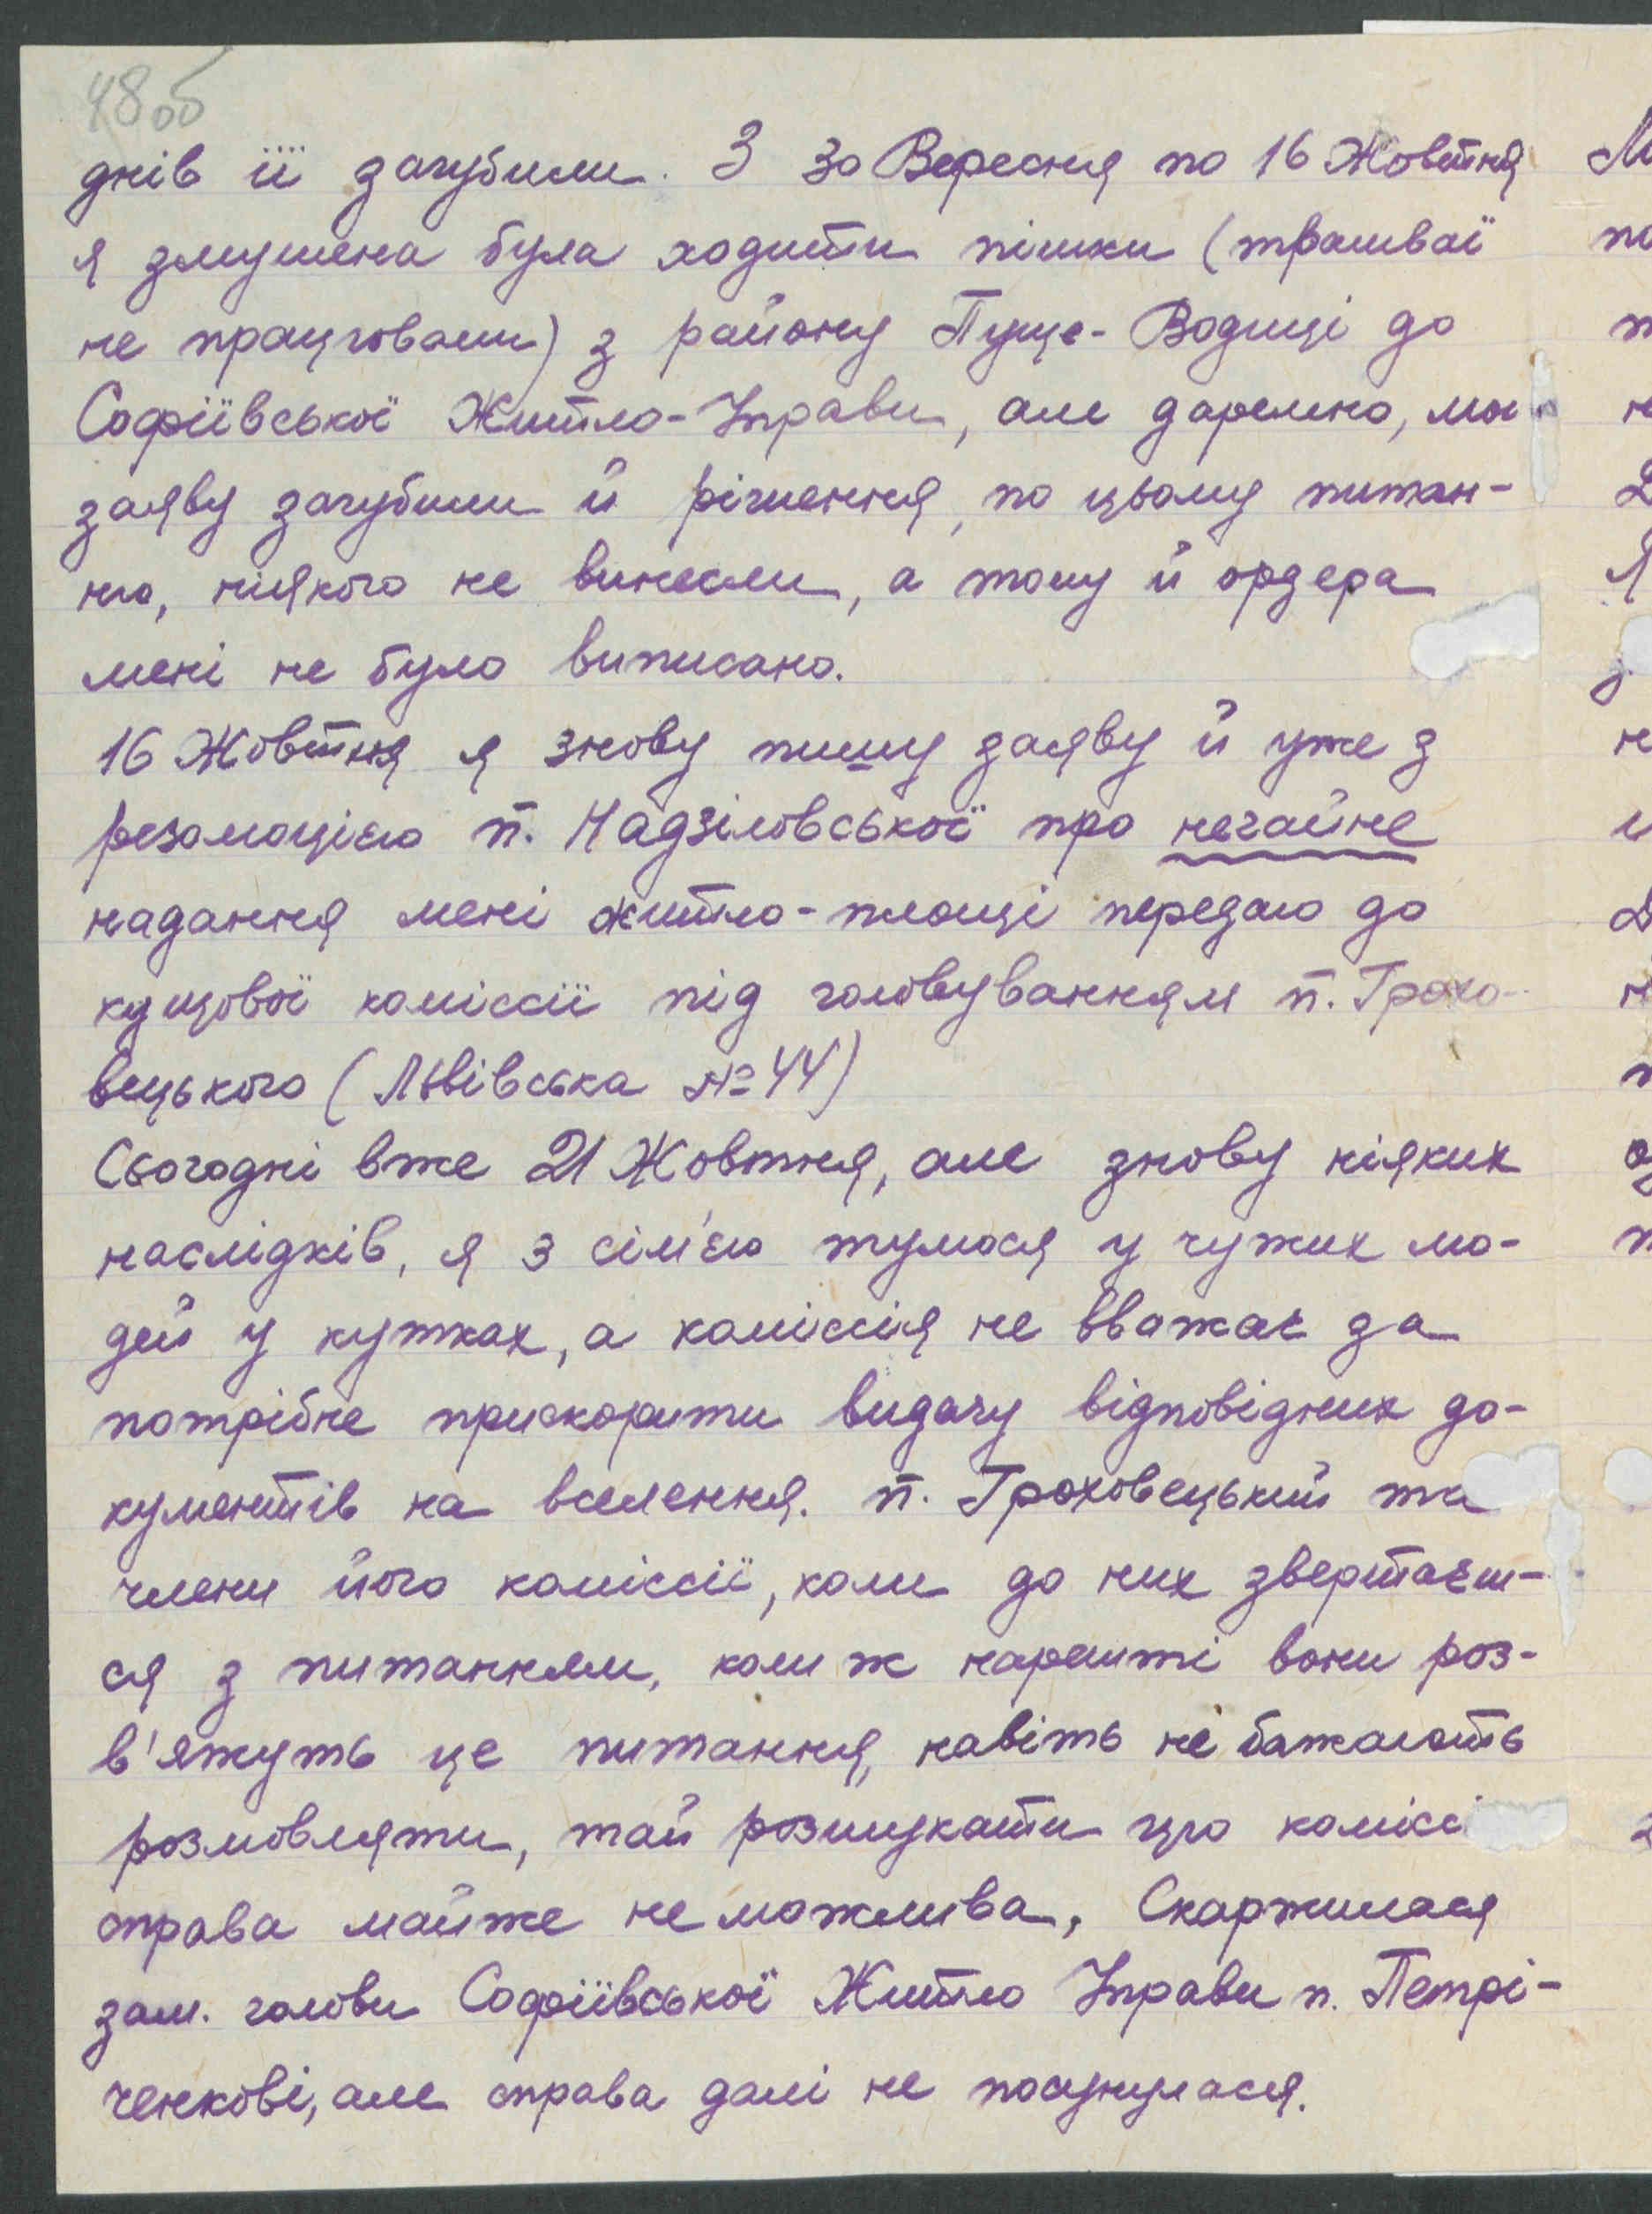 48об
днів її загубили. З 30 Вересня по 16 Жовтня
я змушена була ходити пішки (трамваї
не працювали) з району Пуще-Водиці до
Софіївської Житло-Управи, але даремно, мою
заяву загубили й рішення, по цьому питан-
ню, ніякого не винесли, а тому й ордера
мені не було виписано.
16 Жовтня я знову пишу заяву й уже з
резолюцією п. Надзіловської про негайне
надання мені житло-площі передаю до
кущової коміссії під головуванням п. Грохо-
вецького (Львівська №44)
Сьогодні вже 21 Жовтня, але знову ніяких
наслідків, я з сім'єю тулюся у чужих лю-
дей у кутках, а коміссія не вважає за
потрібне прискорити видачу відповідних до-
кументів на вселення. п. Гроховецький та
члени його коміссії, коли до них звертаєш-
ся з питанням, коли ж нарешті вони роз-
в'яжуть це питання, навіть не бажають
розмовляти, тай розшукати цю коміссі
справа майже неможлива, Скаржилася
зам. голови Софіївської Житло Управи п. Петрі-
ченкові, але справа далі не посунулася.